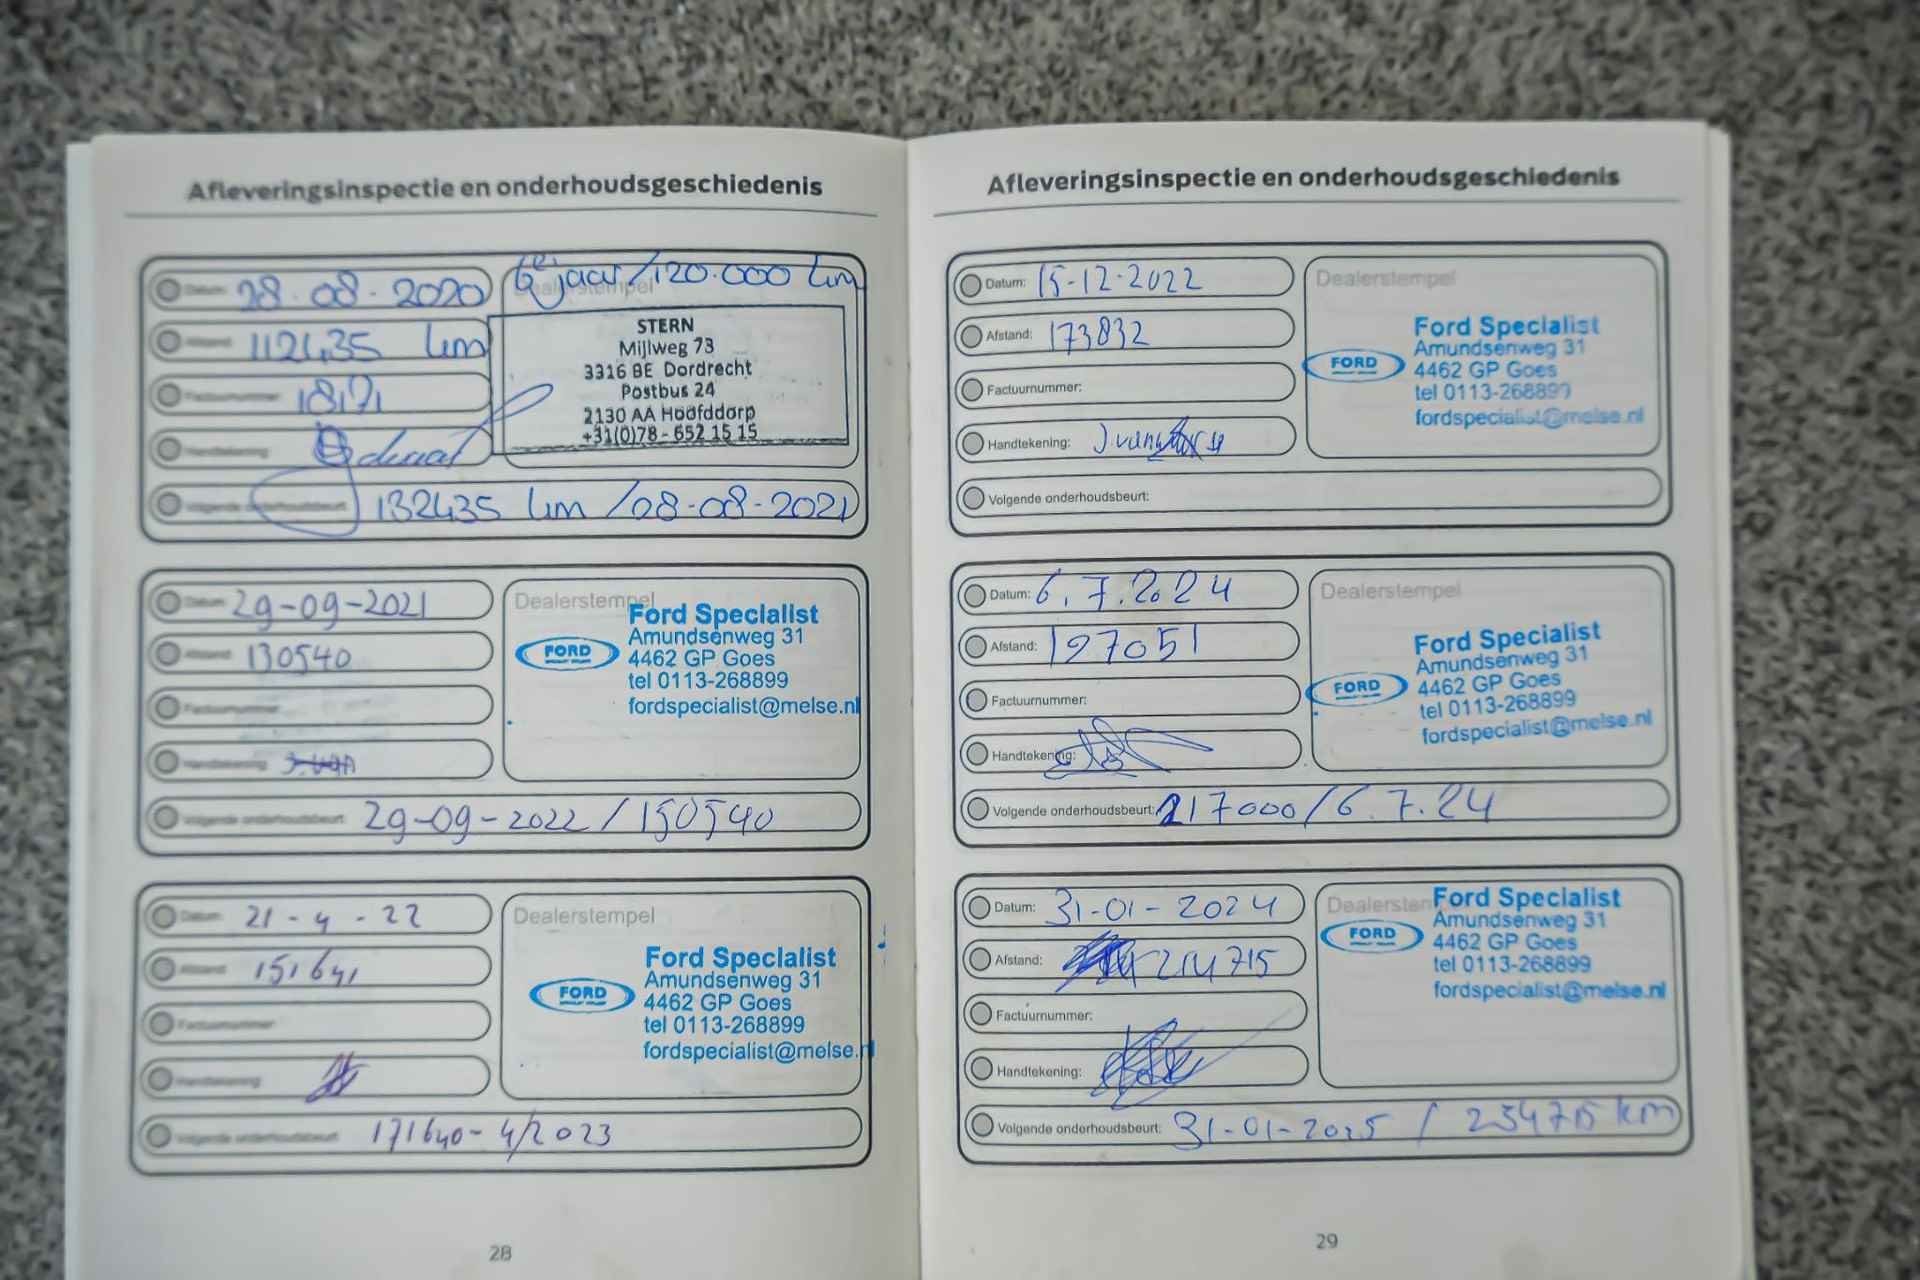 Afleveringsinspectie en onderhoudsgeschiedenis
Datum: 28-08-2020
6e jaar/120.000 km
Dealerstempel
Afstand: 112435 km
Factuurnummer:
Handtekening:
STERN
Mijlweg 73
3316 BE Dordrecht
Postbus 24
2130 AA Hoofddorp
+31(0)78 - 652 15 15
Volgende onderhoudsbeurt: 132435 km /28-08-2021
Datum: 29-09-2021
Afstand: 130540
Factuurnummer:
Handtekening:
Dealerstempel
FORD
Ford Specialist
Amundsenweg 31
4462 GP Goes
tel 0113-268899
fordspecialist@melse.nl
Volgende onderhoudsbeurt: 29-09-2022 / 150540
Datum: 21-4-22
Afstand: 151641
Factuurnummer:
Handtekening:
Dealerstempel
FORD
Ford Specialist
Amundsenweg 31
4462 GP Goes
tel 0113-268899
fordspecialist@melse.nl
Volgende onderhoudsbeurt: 171640-4/2023
28
Afleveringsinspectie en onderhoudsgeschiedenis
Datum: 15-12-2022
Afstand: 173832
Factuurnummer:
Handtekening:
Dealerstempel
FORD
Ford Specialist
Amundsenweg 31
4462 GP Goes
tel 0113-268899
fordspecialist@melse.nl
Volgende onderhoudsbeurt:
Datum: 6.7.2024
Afstand: 197051
Factuurnummer:
Handtekening:
Dealerstempel
FORD
Ford Specialist
Amundsenweg 31
4462 GP Goes
tel 0113-268899
fordspecialist@melse.nl
Volgende onderhoudsbeurt: 217000/6.7.24
Datum: 31-01-2024
Afstand: 214715
Factuurnummer:
Handtekening:
FORD
Ford Specialist
Amundsenweg 31
4462 GP Goes
tel 0113-268899
fordspecialist@melse.nl
Volgende onderhoudsbeurt: 31-01-2025 / 234715 km
29